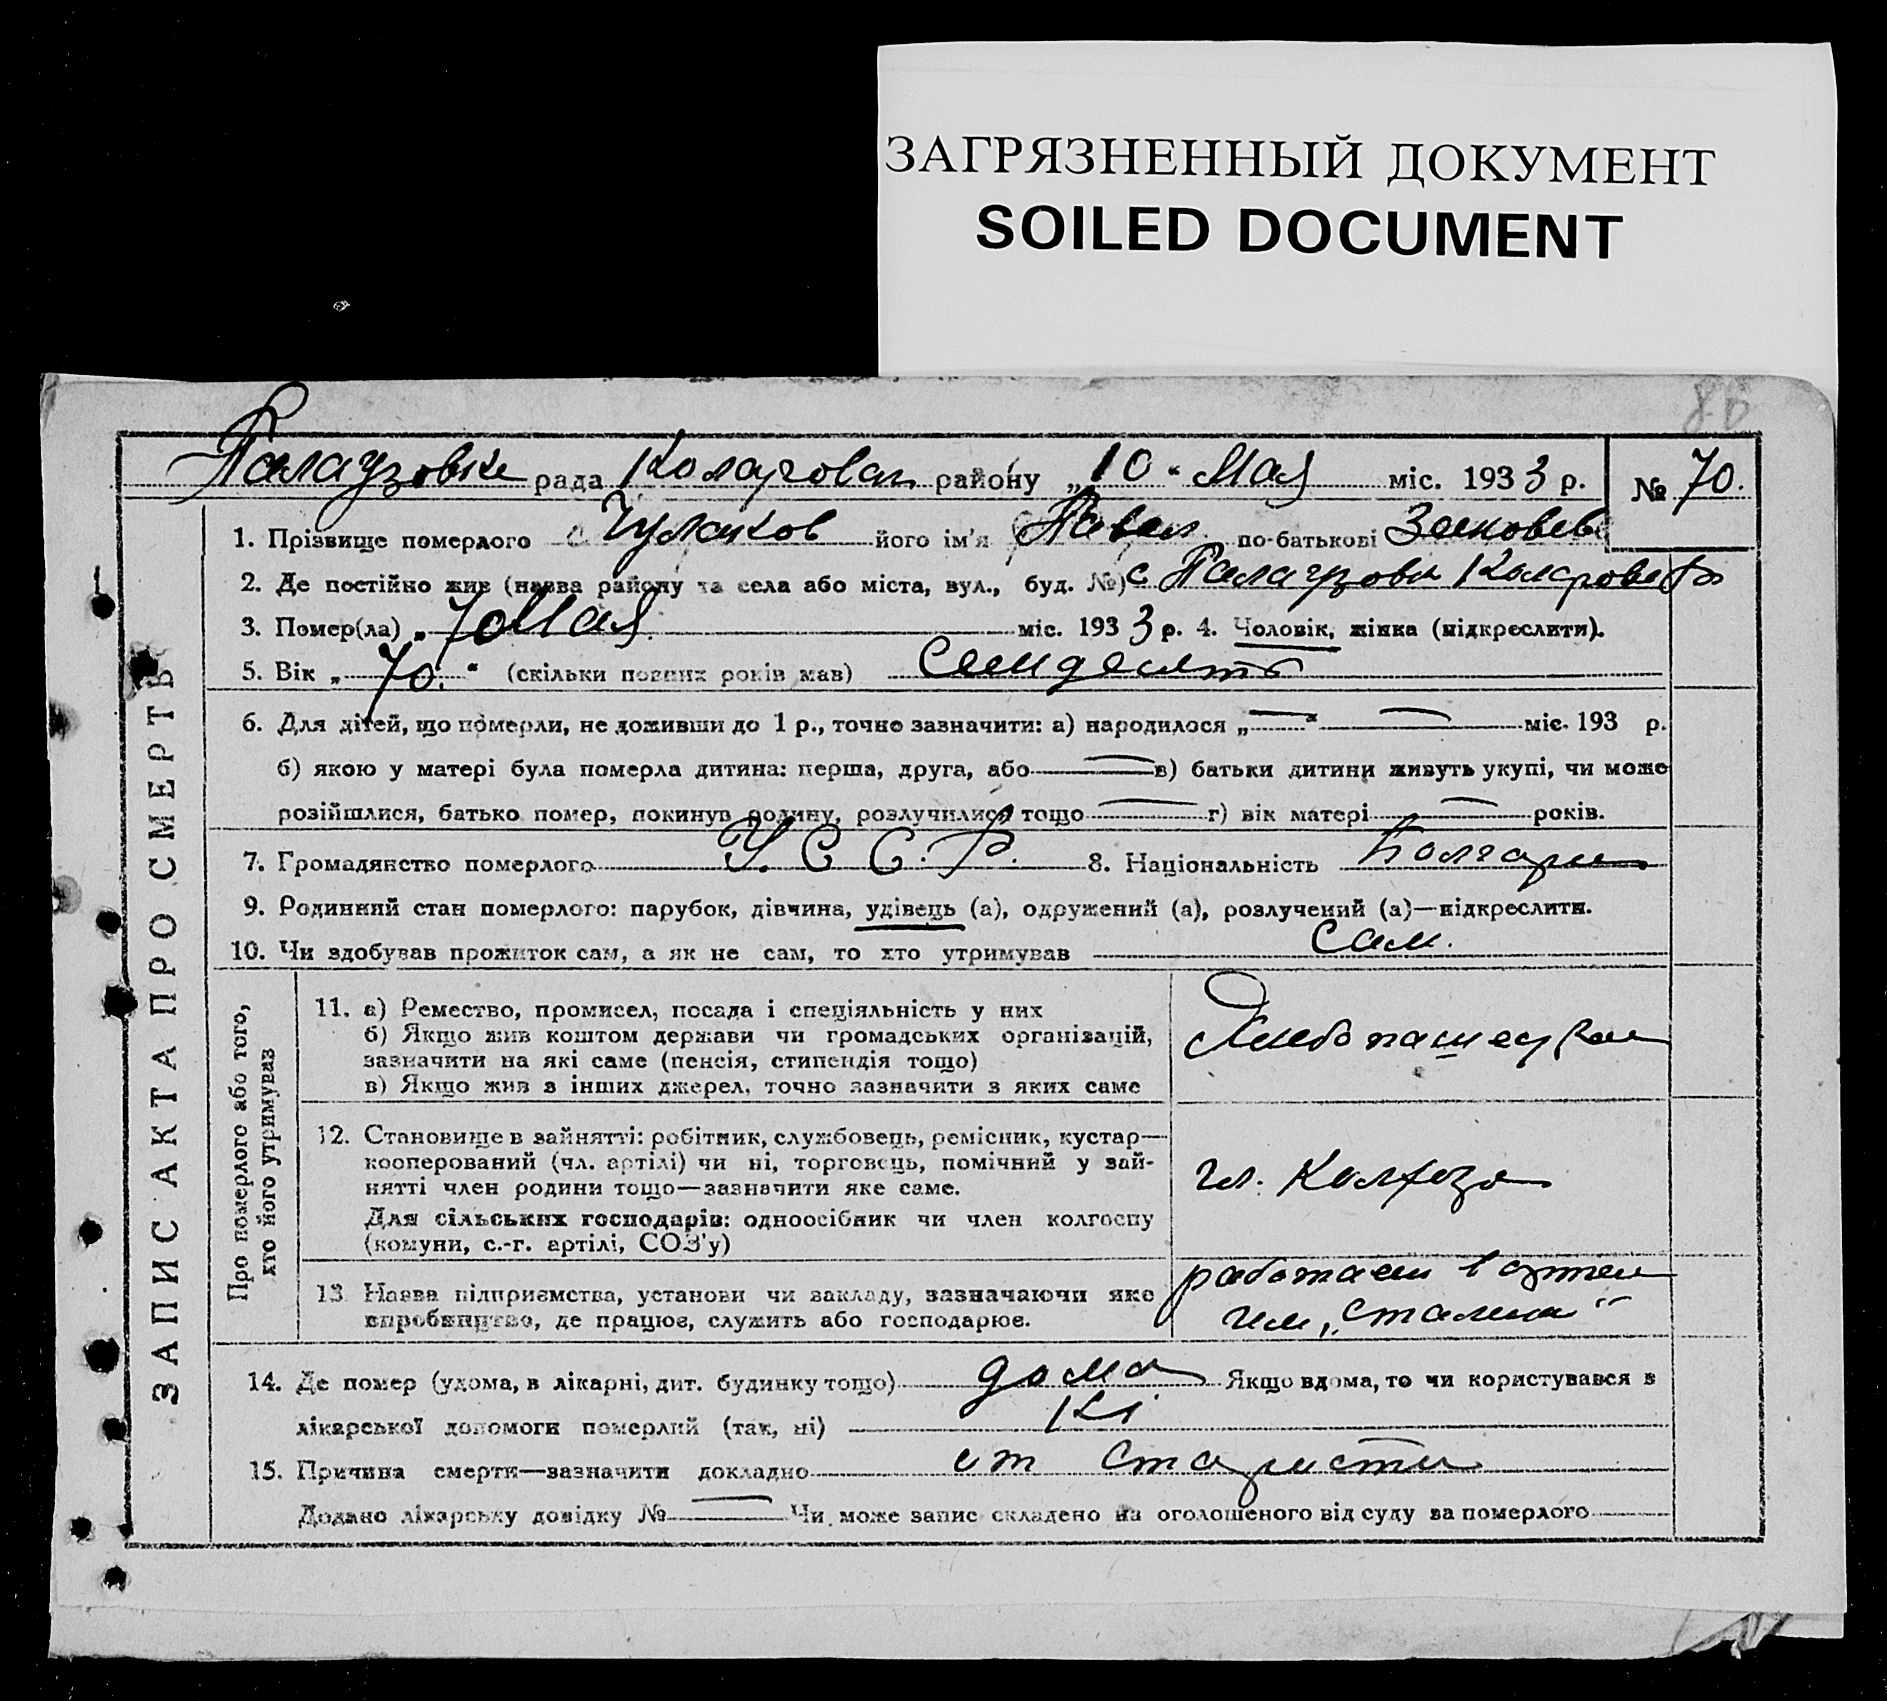 ЗАГРЯЗНЕННЫЙ ДОКУМЕНТ
SOILED DOCUMENT
80
Палаузовке рада Коларовск району „10“ Мая міс. 1933 р. № 70.
1. Прізвище померлого його ім'я Павел по-батькові
2. Де постійно жив (назва району та села або міста, вул., буд. №) с Палаузовк
3. Помер(ла) „ Мая міс. 1933 р. 4. Чоловік, жінка (підкреслити).
5. Вік „70.“ (скільки повних років мав) Семдесять
6. Для дітей, що померли, не доживши до 1 р., точно зазначити: а) народилося „—“ — міс. 193 р.
б) якою у матері була померла дитина: перша, друга, або — в) батьки дитини живуть укупі, чи може
розійшлися, батько помер, покинув родину, розлучилися тощо — г) вік матері — років.
7. Громадянство померлого У. С С. Р. 8. Національність Болгарин
9. Родинний стан померлого: парубок, дівчина, удівець (а), одружений (а), розлучений (а)—підкреслити.
10. Чи здобував прожиток сам, а як не сам, то хто утримував сам.
ЗАПИС АКТА ПРО СМЕРТЬ
Про померлого або того,
хто його утримував
11. а) Ремество, промисел, посада і спеціяльність у них
б) Якщо жив коштом держави чи громадських організацій,
зазначити на які саме (пенсія, стипендія тощо)
в) Якщо жив з інших джерел, точно зазначити з яких саме
12. Становище в зайнятті: робітник, службовець, ремісник, кустар—
кооперований (чл. артілі) чи ні, торговець, помічний у зай-
нятті член родини тощо—зазначити яке саме.
Для сільських господарів: одноосібник чи член колгоспу
(комуни, с.-г. артілі, СОЗ'у)
чл. Колхоза
13. Назва підприємства, установи чи закладу, зазначаючи яке
виробництво, де працює, служить або господарює.
работает в артели
им „Сталина“
14. Де помер (удома, в лікарні, дит. будинку тощо) дома Якщо вдома, то чи користувався з
лікарської допомоги померлий (так, ні) Ні
15. Причина смерти—зазначити докладно от старости
Додано лікарську довідку № — Чи може запис складено на оголошеного від суду за померлого